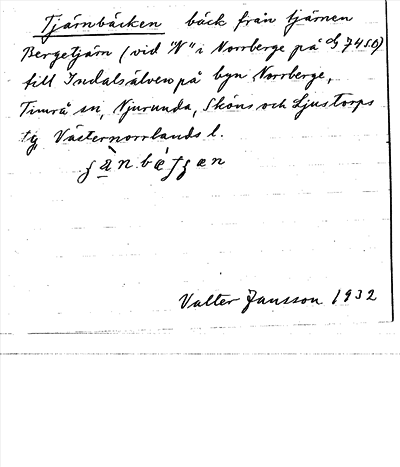 Tjärnbäcken bäck från tjärnen
Bergetjärn (vid "N" i Norrberge på G 74 SO)
till Indalsälven på byn Norrberge,
Timrå sn, Njurunda, Sköns och Ljustorps
tg Västernorrlands l.
Valter Jansson 1932